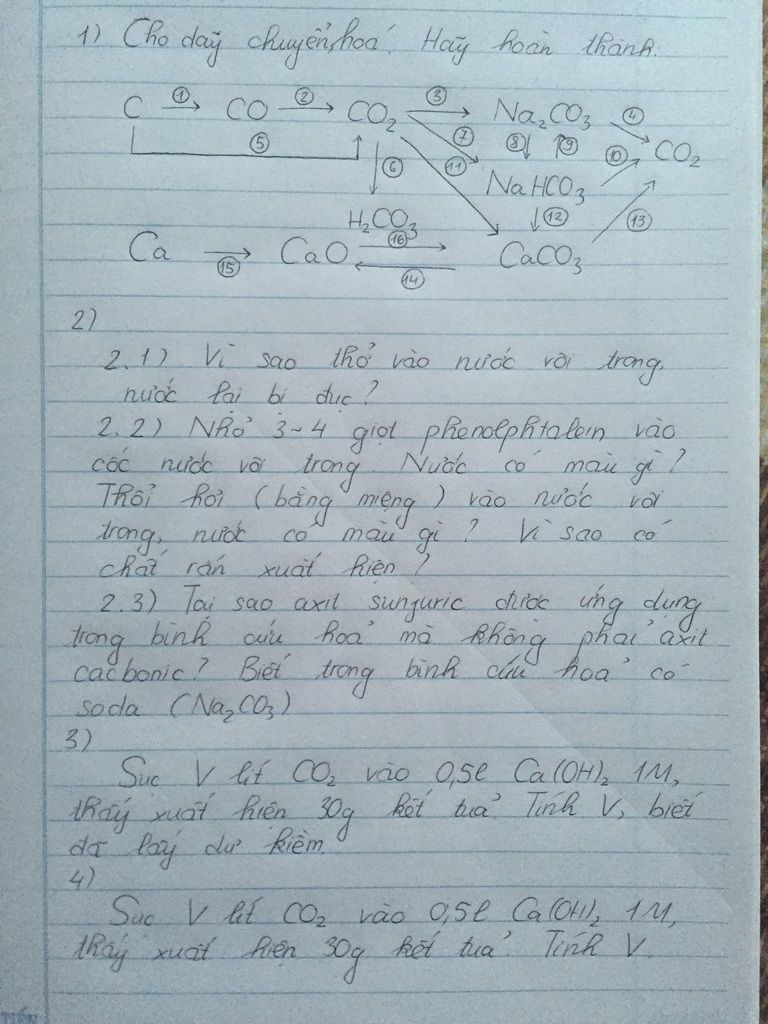 1) Cho dãy chuyển hoá. Hãy hoàn thành.
C ① CO ② CO₂ ③ Na₂CO₃ ④
⑤ ⑦ ⑧ ⑨ ⑩ CO₂
⑥ ⑪ NaHCO₃
H₂CO₃ ⑫ ⑬
Ca ⑮ CaO ⑯ ⑭ CaCO₃
2)
2.1) Vì sao thở vào nước vôi trong,
nước lại bị đục?
2.2) Nhỏ 3-4 giọt phenolphtalein vào
cốc nước vôi trong. Nước có màu gì?
Thổi hơi (bằng miệng) vào nước vôi
trong, nước có màu gì? Vì sao có
chất rắn xuất hiện?
2.3) Tại sao axit sunfuric được ứng dụng
trong bình cứu hoả mà không phải axit
cacbonic? Biết trong bình cứu hoả có
soda (Na₂CO₃)
3)
Sục V lít CO₂ vào 0,5l Ca(OH)₂ 1M,
thấy xuất hiện 30g kết tủa. Tính V, biết
đã lấy dư kiềm.
4)
Sục V lít CO₂ vào 0,5l Ca(OH)₂ 1M,
thấy xuất hiện 30g kết tủa. Tính V.